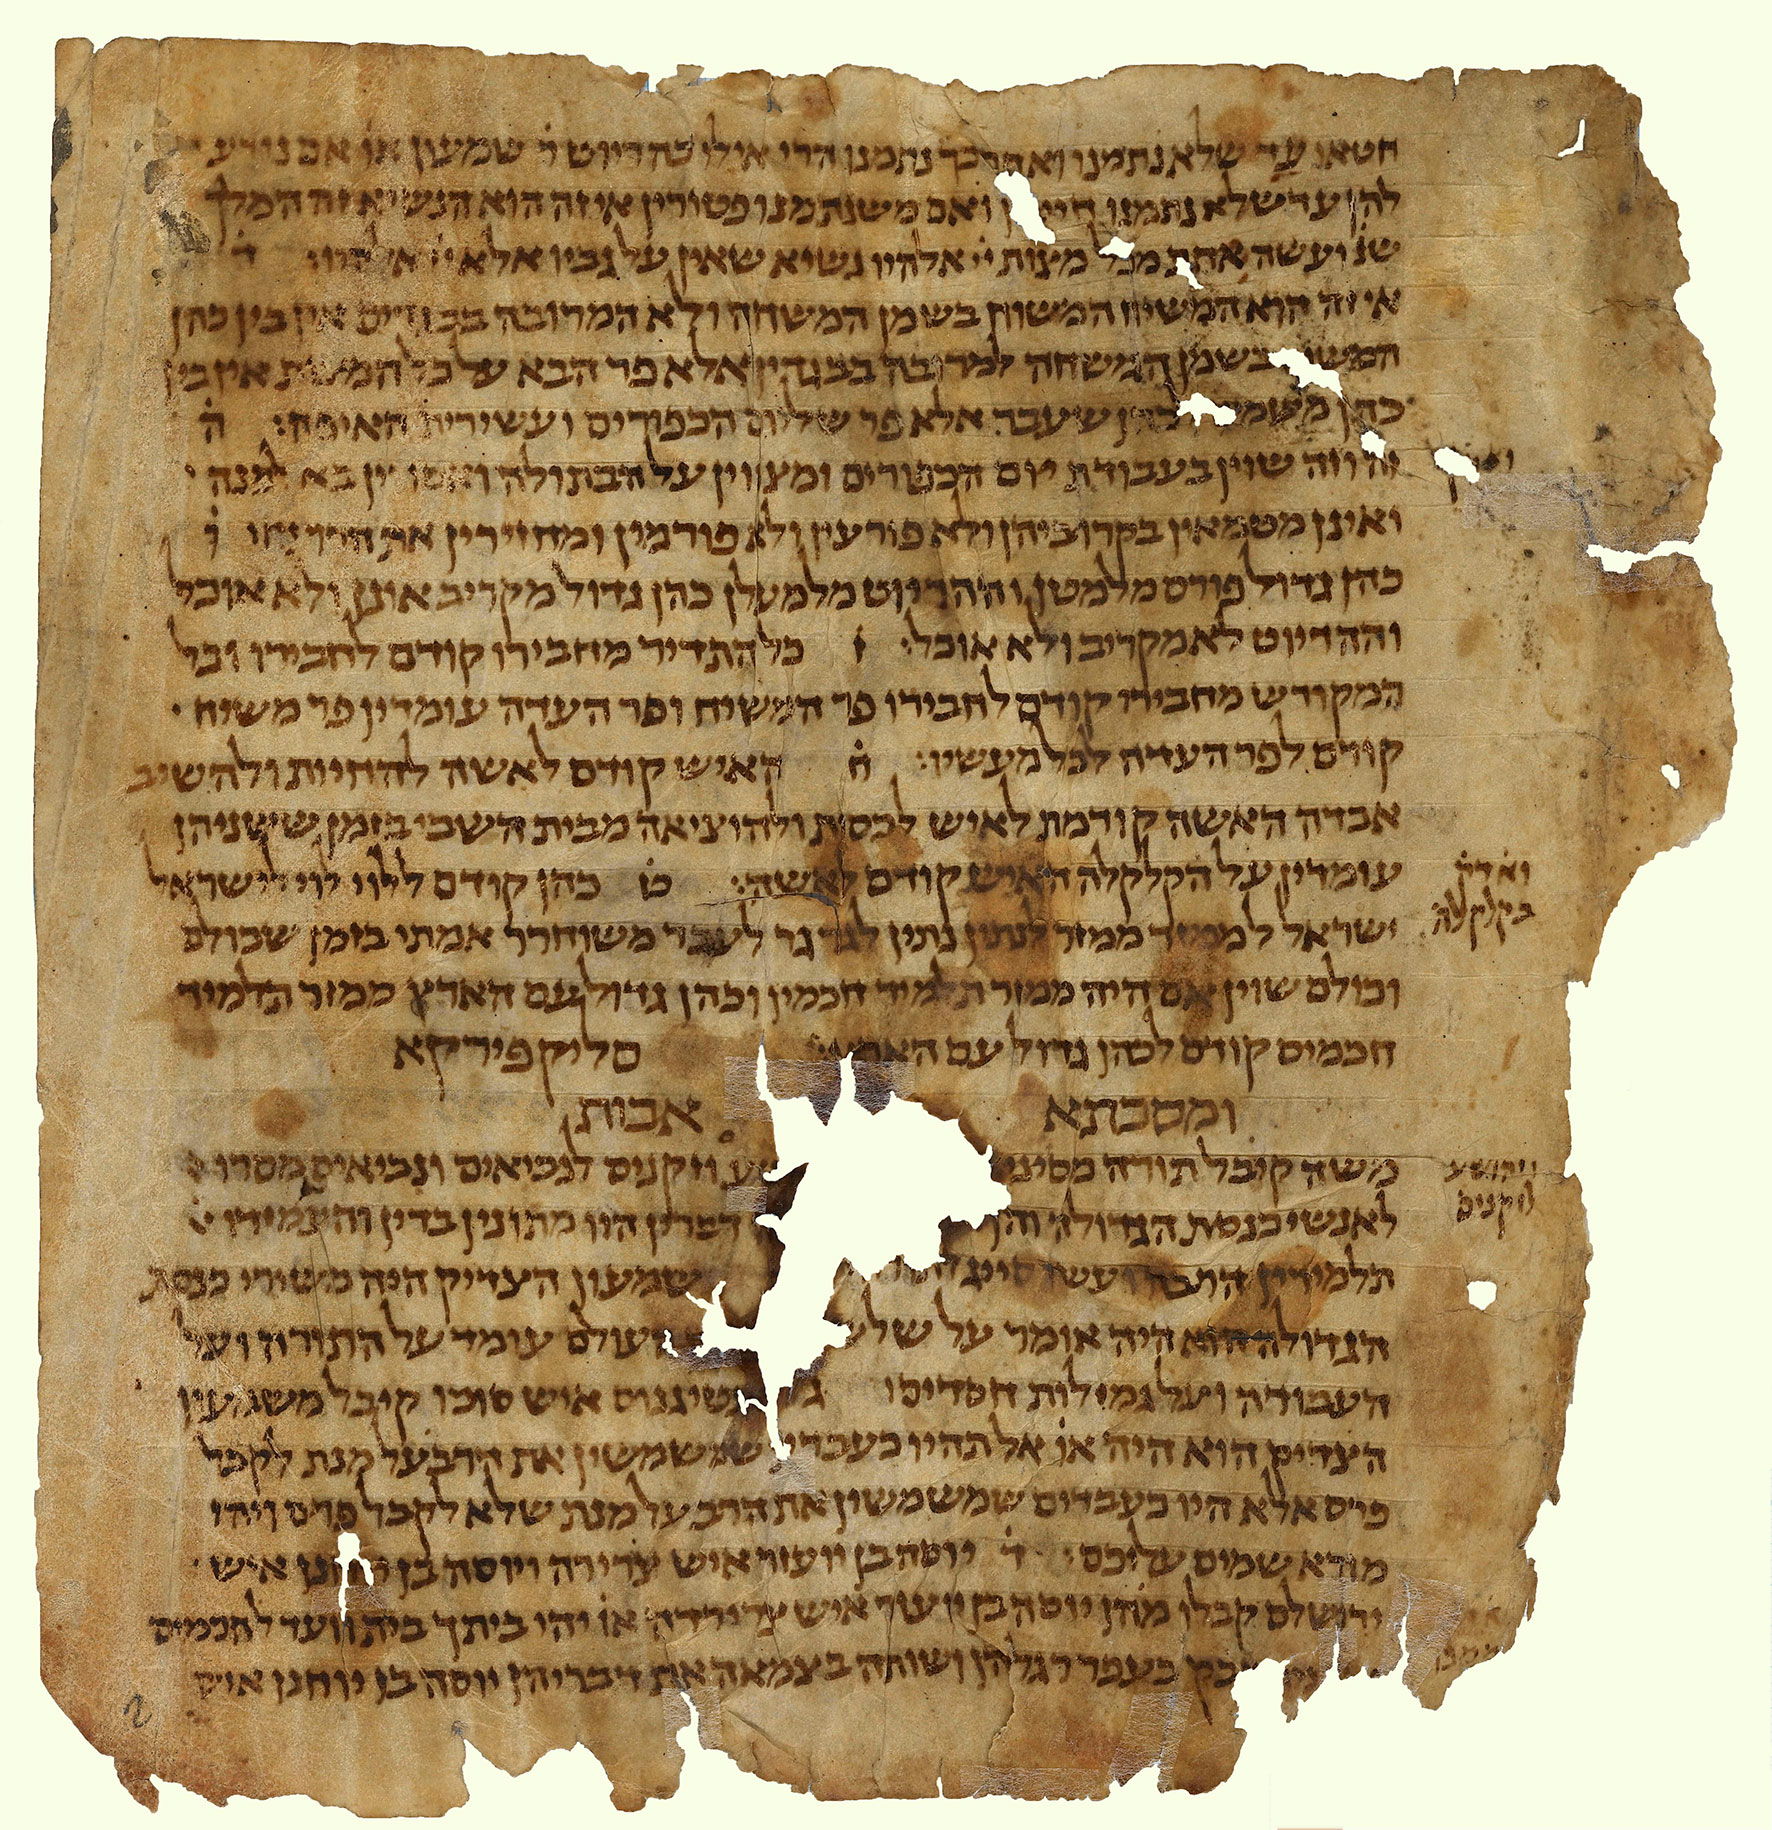 חטאו עד שלא נתמנו ואחר כך נתמנו הרי אילו כהדיוט ר׳ שמעון או׳ אם נודע
להן עד שלא נתמנו ואם משנתמנו פטורין איזה הוא הנשיא זה המלך
שנ׳ ועשה אחת מכל מצות ייי אלהיו נשיא שאין על גביו אלא ייי אלהיו׃ ד̇
אי זה הוא המשיח המשוח בשמן המשחה ולא המרובה בבגדים אין בין כהן
המשוח בשמן המשחה למרובה בבגדין אלא פר הבא על כל המצות אין בין
כהן משמש לכהן שעבר אלא פר של יום הכפורים ועשירית האיפה׃ ה̇
זה וזה שוין בעבודת יום הכפורים ומצווין על הבתולה ואסורין באלמנה
ואינן מטמאין בקרוביהן ולא פורעין ולא פורמין ומחזירין את הרוצח ו̇
כהן גדול פורם מלמטן וההדיוט מלמעלן כהן גדול מקריב אונן ולא אוכל
וההדיוט לא מקריב ולא אוכל׃ ז כל התדיר מחבירו קודם לחבירו וכל
המקודש מחבירו קודם לחבירו פר המשיח ופר העדה עומדין פר משיח
קודם לפר העדה לכל מעשיו׃ ח̇ האיש קודם לאשה להחיות ולהשיב
אבדה האשה קודמת לאיש לכסות ולהוציאה מבית השבי בזמן ששניהן
עומדין על הקלקלה האיש קודם לאשה׃ ט כהן קודם ללוי לוי לישראל
ישראל לממזר ממזר לנתין נתין לגר גר לעבד משוחרר אמתי בזמן שכולם
וכולם שוין אם היה ממזר תלמיד חכמין וכהן גדול עם הארץ ממזר תלמיד
חכמים קודם לכהן גדול עם הארץ׃ סליק פירקא
ומסכתא אבות
משה קיבל תורה מסיני וזקנים לנביאים ונביאים מסרוה
לאנשי כנסת הגדולה והן דברין היו מתונין בדין והעמידו
תלמידין הרבה ועשו סייג שמעון הצדיק היה משירי כנסת
הגדולה הוא היה אומר על שלשה העולם עומד על התורה ועל
העבודה ועל גמילות חסדים׃ ג אנטיגנוס איש סוכו קיבל משמעון
הצדיק הוא היה או׳ אל תהיו כעבדים שמשמשין את הרב על מנת לקבל
פרס אלא היו כעבדים שמשמשין את הרב על מנת שלא לקבל פרס ויהי
מורא שמים עליכם׃ ד̇ יוסה בן יועזר איש צרידה ויוסה בן יוחנן איש
ירושלם קבלו מהן יוסה בן יועזר איש צרידה או׳ יהי ביתך בית וועד לחכמים
בעפר רגליהן ושותה בצמאה את דבריהן יוסה בן יוחנן איש
ואם הן
בקלקלה
ויהושע
לזקנים